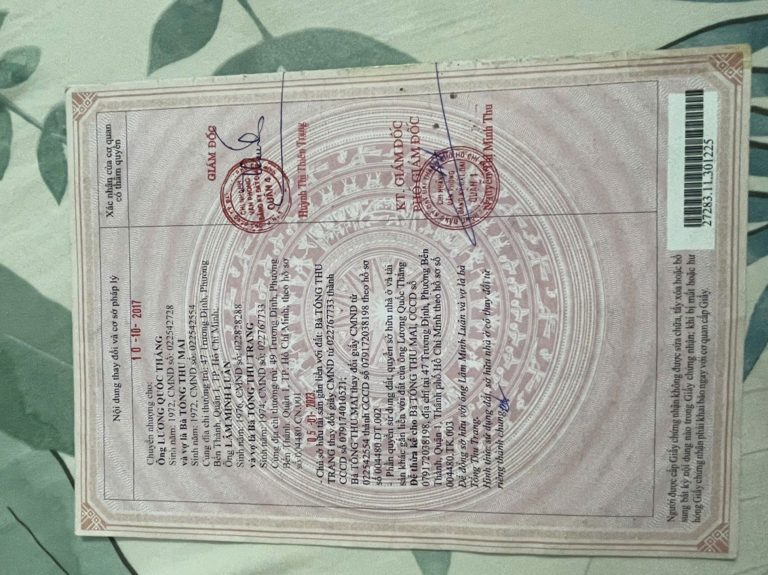 Nội dung thay đổi và cơ sở pháp lý
Xác nhận của cơ quan
có thẩm quyền
10-10-2017
Chuyển nhượng cho:
Ông LƯƠNG QUỐC THẮNG
Sinh năm: 1972, CMND số: 022542728
và vợ là Bà TỐNG THU MAI
Sinh năm: 1972, CMND số: 022542554
Cùng địa chỉ thường trú: 47 Trương Định, Phường
Bến Thành, Quận 1, TP. Hồ Chí Minh;
Ông LÂM MINH LUÂN
Sinh năm: 1976, CMND số:
và vợ là Bà TỐNG THU TRANG
Sinh năm: 1974, CMND số: 022767733
Cùng địa chỉ thường trú: 49 Trương Định, Phường
Bến Thành, Quận 1, TP. Hồ Chí Minh, theo hồ sơ
số 004480.CN.001
GIÁM ĐỐC
CHI NHÁNH
VĂN PHÒNG
ĐĂNG KÝ ĐẤT ĐAI
QUẬN
Huỳnh Thị Thiên Trang
05-01-2023
- Chủ sở hữu tài sản gắn liền với đất: Bà TỐNG THU
TRANG thay đổi giấy CMND từ 022767733 thành
CCCD số 079174010521;
Bà TỐNG THU MAI thay đổi giấy CMND từ
022542554 thành CCCD số 079172038198 theo hồ sơ
số 004480.DT.002
- Phần quyền sử dụng đất quyền sở hữu nhà ở và tài
sản khác gắn liền với đất của ông Lương Quốc Thắng
Để thừa kế cho Bà TỐNG THU MAI, CCCD số
079172038198, địa chỉ tại 47 Trương Định, Phường Bến
Thành, Quận 1, Thành phố Hồ Chí Minh theo hồ sơ số
004480.TK.003
Để đồng sở hữu với ông Lâm Minh Luân và vợ là bà
Tống Thu Trang
Hình thức sử dụng đất, sở hữu nhà ở có thay đổi từ
riêng thành chung
KT. GIÁM ĐỐC
PHÓ GIÁM ĐỐC
CHI NHÁNH
VĂN PHÒNG
QUẬN 1
Minh Thu
Người được cấp Giấy chứng nhận không được sửa chữa, tẩy xóa hoặc bổ
sung bất kỳ nội dung nào trong Giấy chứng nhận; khi bị mất hoặc hư
hỏng Giấy chứng nhận phải khai báo ngay với cơ quan cấp Giấy.
27283.11.301225